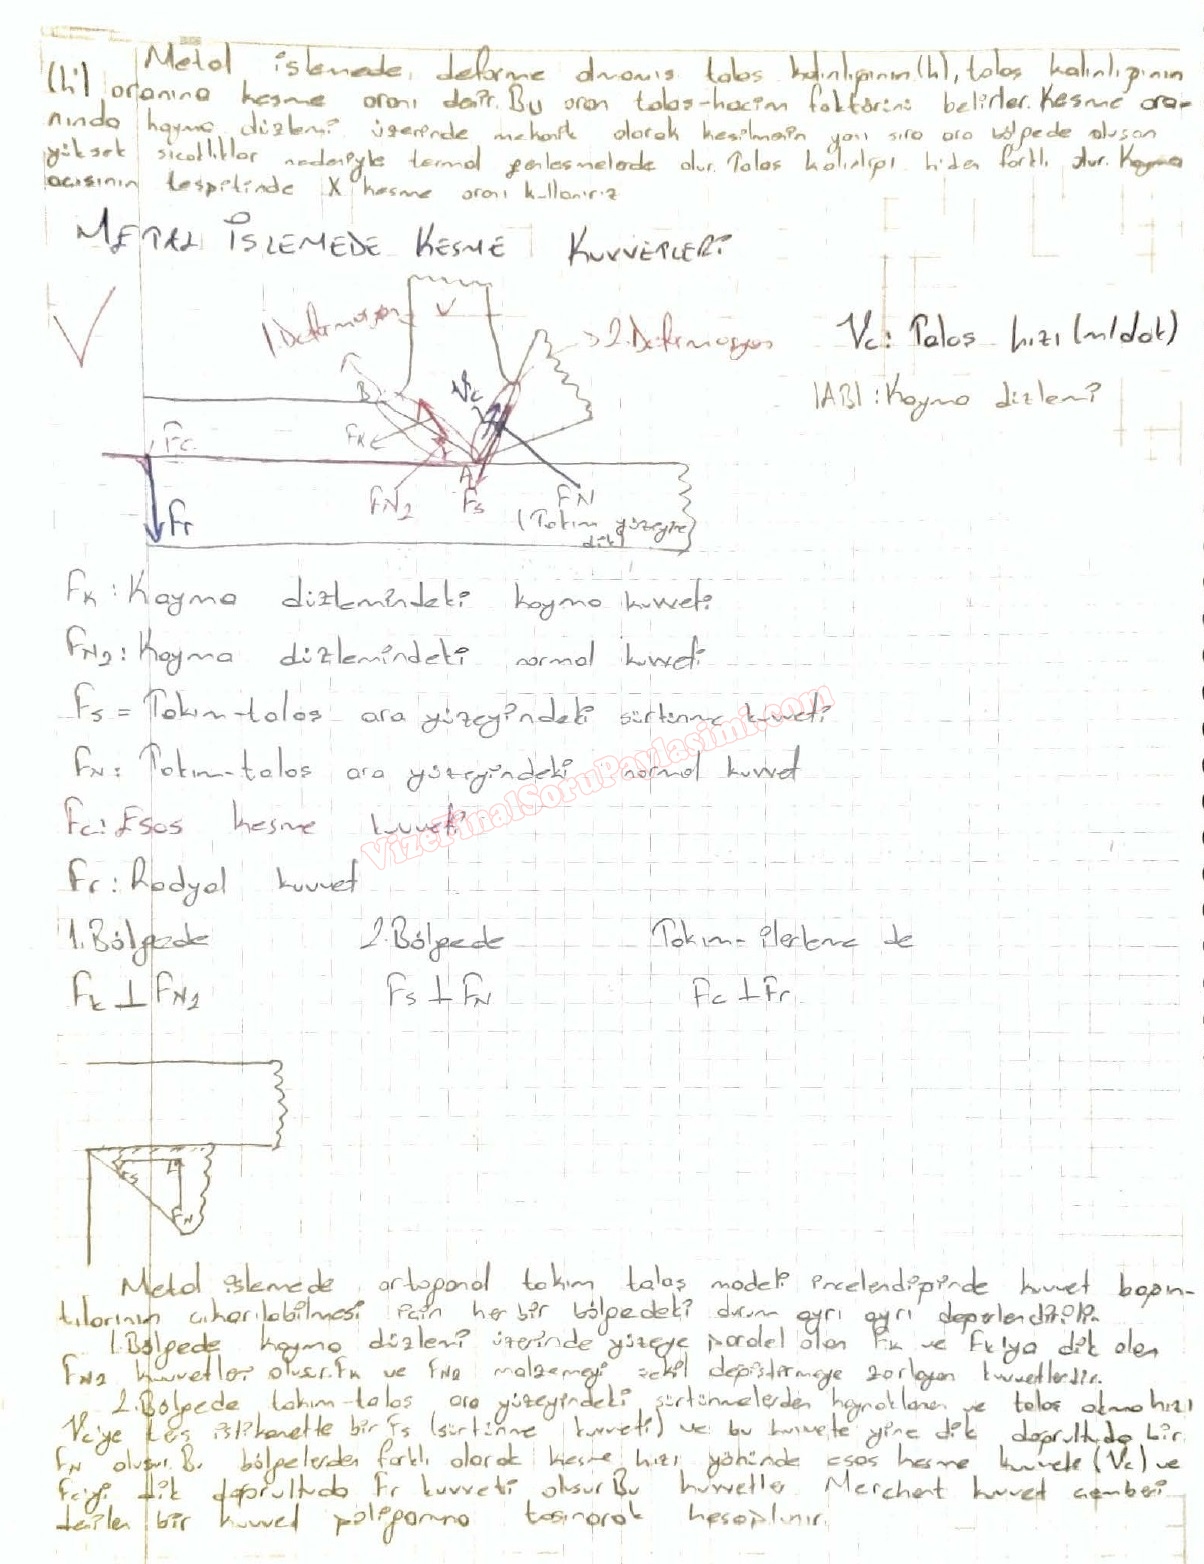 Metal işlemede, deforme olmamış talaş kalınlığının (h), talaş kalınlığının
(h') oranına kesme oranı denir. Bu oran talaş-hacim faktörünü belirler. Kesme ora-
nında kayma düzlemi üzerinde mekanik olarak kesilmenin yanı sıra ara bölgede oluşan
yüksek sıcaklıklar nedeniyle termal genleşmelerde olur. Talaş kalınlığı h'den farklı olur. Kayma
açısının tespitinde X kesme oranı kullanırız
METAL İŞLEMEDE KESME KUVVETLERİ
1.Deformasyon
V
2.Deformasyon
Vc: Talaş hızı (m/dak)
|AB| : Kayma düzlemi
B
Vc
Fk
Fc
A
Fr
FN2
Fs
FN
(Takım yüzeyine
dik)
Fk : Kayma düzlemindeki kayma kuvveti
FN2 : Kayma düzlemindeki normal kuvveti
Fs = Takım-talaş ara yüzeyindeki sürtünme kuvveti
FN : Takım-talaş ara yüzeyindeki normal kuvvet
Fc : Esas kesme kuvveti
Fr : Radyal kuvvet
VizeFinalSoruPaylasimi.com
1.Bölgede 2.Bölgede Takım-ilerleme de
Fk ⊥ FN2 Fs ⊥ FN Fc ⊥ Fr
Fs
FN
Metal işlemede ortogonal takım talaş modeli incelendiğinde kuvvet bağın-
tılarının çıkarılabilmesi için her bir bölgedeki durum ayrı ayrı değerlendirilir.
1.Bölgede kayma düzlemi üzerinde yüzeye paralel olan Fk ve Fk'ya dik olan
FN2 kuvvetler oluşur. Fk ve FN2 malzemeyi şekil değiştirmeye zorlayan kuvvetlerdir.
2.Bölgede takım-talaş ara yüzeyindeki sürtünmelerden kaynaklanan ve talaş akma hızı
Vc'ye ters istikamette bir Fs (sürtünme kuvveti) ve bu kuvvete yine dik doğrultuda bir
FN oluşur. Bu bölgelerden farklı olarak kesme hızı yönünde esas kesme kuvvete (Vc) ve
Fc'yi dik doğrultuda Fr kuvveti oluşur Bu kuvvetler Merchant kuvvet çemberi
denilen bir kuvvet poligonuna taşınarak hesaplanır.